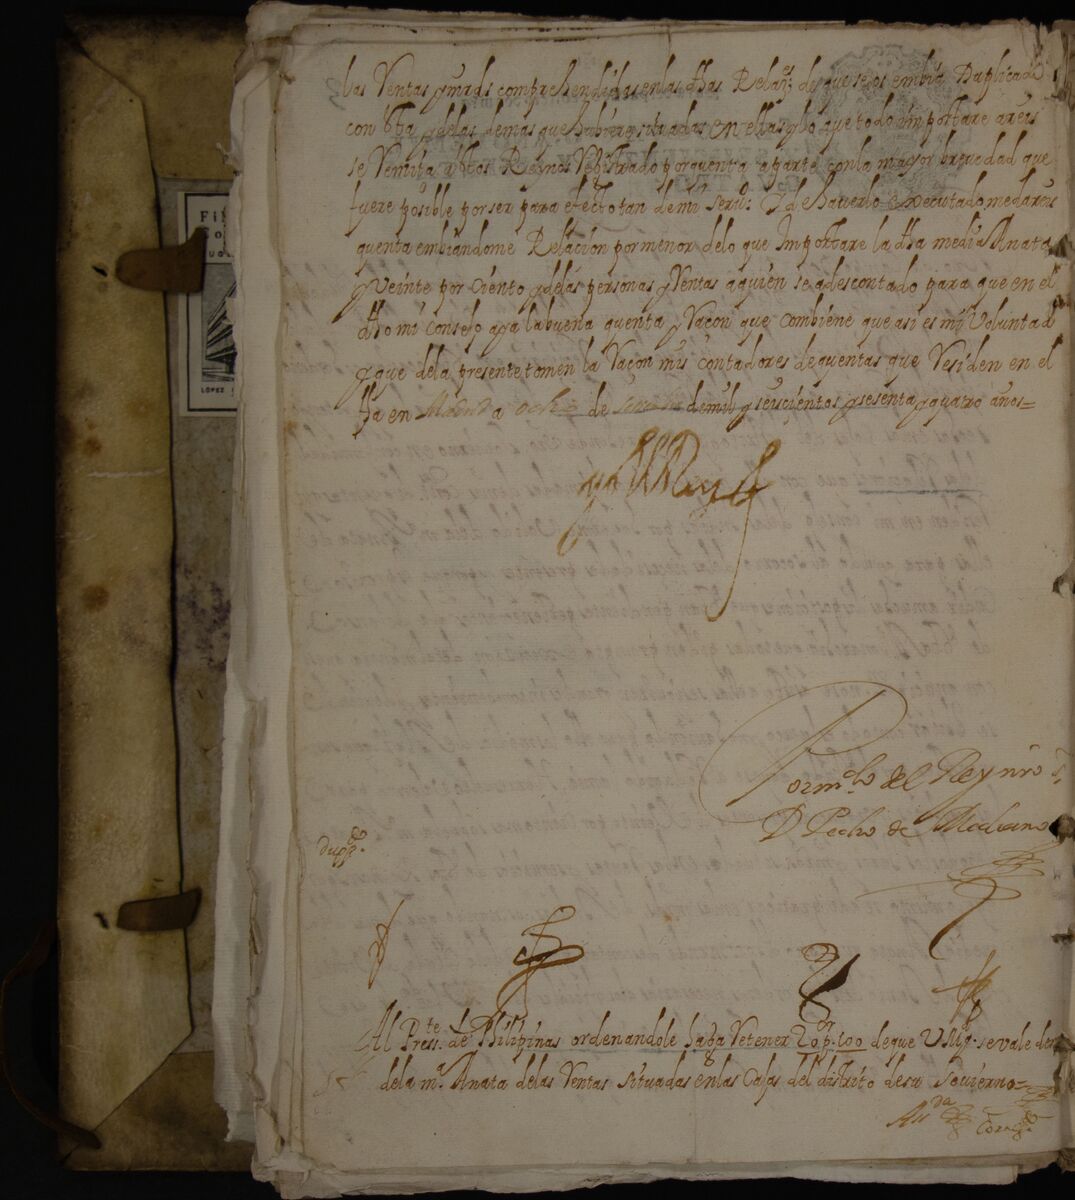 las Ventas y mrds comprehendidas en las dhas Relaçes de que se os embia Duplicado
con esta y de las demas que hubiere situadas en ellas y lo que todo importare areis
se Remita a estos Reynos Registrado por quenta aparte con la mayor brevedad que
fuere posible por ser para efecto tan de mi seruº: Y de hauerlo executado me dareis
quenta embiandome Relacion por menor de lo que Importare la dha media Anata
y Veinte por ciento y de las personas y Rentas a quien se a descontado para que en el
dho mi consejo aya la buena quenta y Raçon que combiene que asi es mi Voluntad
y que de la presente tomen la Raçon mis contadores de quentas que Residen en el
fha en Madrid a ocho de de mil y seiscientos y sesenta y quatro años=
yo el Rey
Por mdo del Rey nro sr
D Pedro de Medrano
dupdo.
Al Presste. de Philipinas ordenandole haga Retener 20 p. 100 de que V. Mg. se vale
de la mª Anata de las Rentas situadas en las Cajas del distrito de su Gouierno=
Corrgda